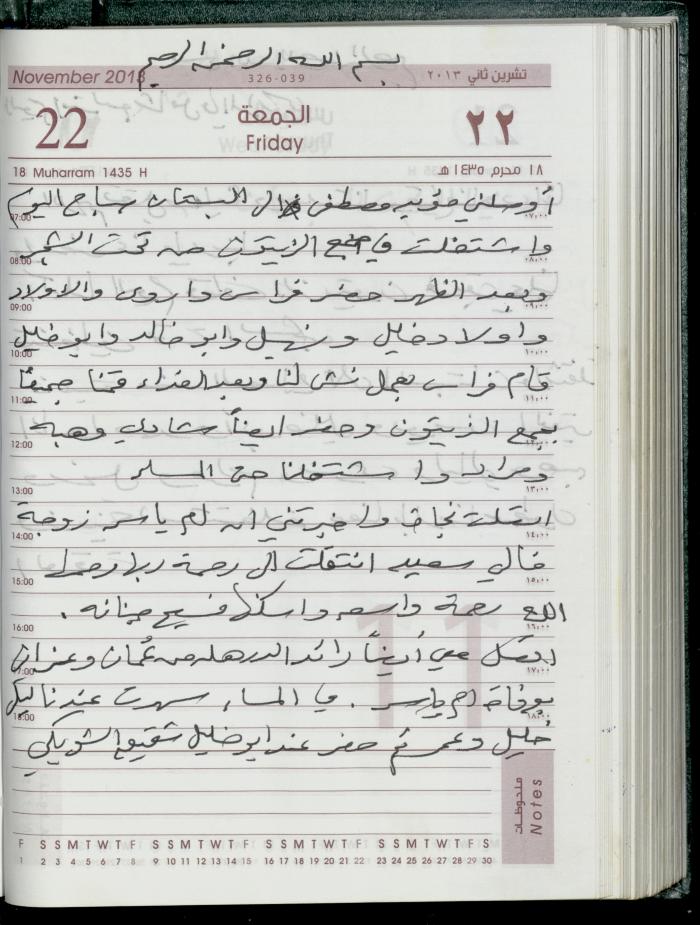 بسم الله الرحمن الرحيم
November 2013 326-039 تشرين ثاني ٢٠١٣
22 الجمعة ٢٢
Friday
18 Muharram 1435 H ١٨ محرم ١٤٣٥هـ
أوصلني مؤيد مصطفى الى البستان صباح اليوم
07:00 ٠٧:٠٠
واشتغلت في جمع الزيتون من تحت الشجر
08:00 ٠٨:٠٠
وبعد الظهر حضر فراس واروى والاولاد
09:00 ٠٩:٠٠
واولاد خليل ونهيل وابو خالد وابو خليل
10:00 ١٠:٠٠
قام فراس بعمل نش لنا وبعد الغداء قمنا جميعاً
11:00 ١١:٠٠
بجمع الزيتون وحضر ايضاً شادي وهبه
12:00 ١٢:٠٠
ومراد واشتغلنا حتى المساء
13:00 ١٣:٠٠
اتصلت نجاة واخبرتني ان ام ياسر زوجة
14:00 ١٤:٠٠
خالي سعيد انتقلت الى رحمة ربها رحمها
15:00 ١٥:٠٠
الله رحمة واسعه واسكنها فسيح جنانه .
16:00 ١٦:٠٠
اتصل معي أيضاً رائد من عُمان وعزاني
17:00 ١٧:٠٠
بوفاة ام ياسر . في المساء سهرت عندنا
18:00 ١٨:٠٠
خليل وعمر ثم حضر عند ابو خليل شقيق الشويكي
ملحوظات
Notes
F S S M T W T F S S M T W T F S S M T W T F S S M T W T F S
1 2 3 4 5 6 7 8 9 10 11 12 13 14 15 16 17 18 19 20 21 22 23 24 25 26 27 28 29 30